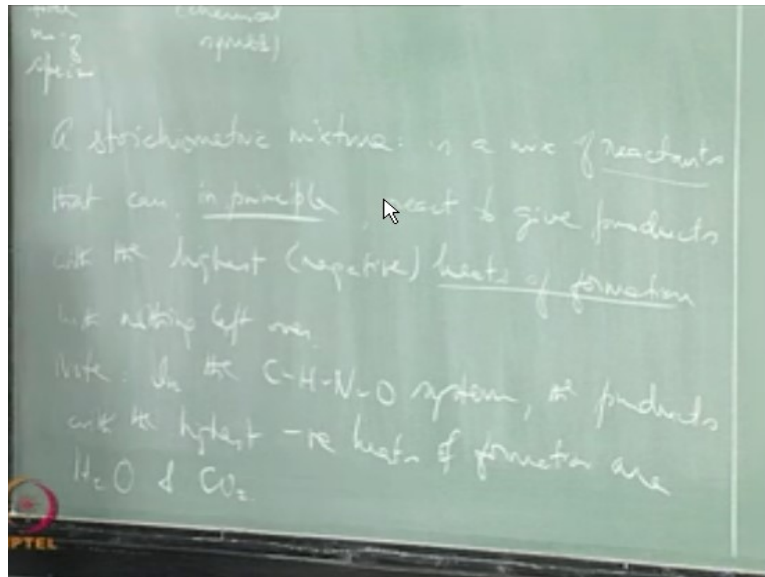 (chemical
A stoichiometric mixture: is a mix of reactants
that can, in principle, react to give products
with the highest (negative) heats of formation
with nothing left over.
Note: In the C-H-N-O system, the products
with the highest -ve heats of formation are
H₂O & CO₂.
PTEL